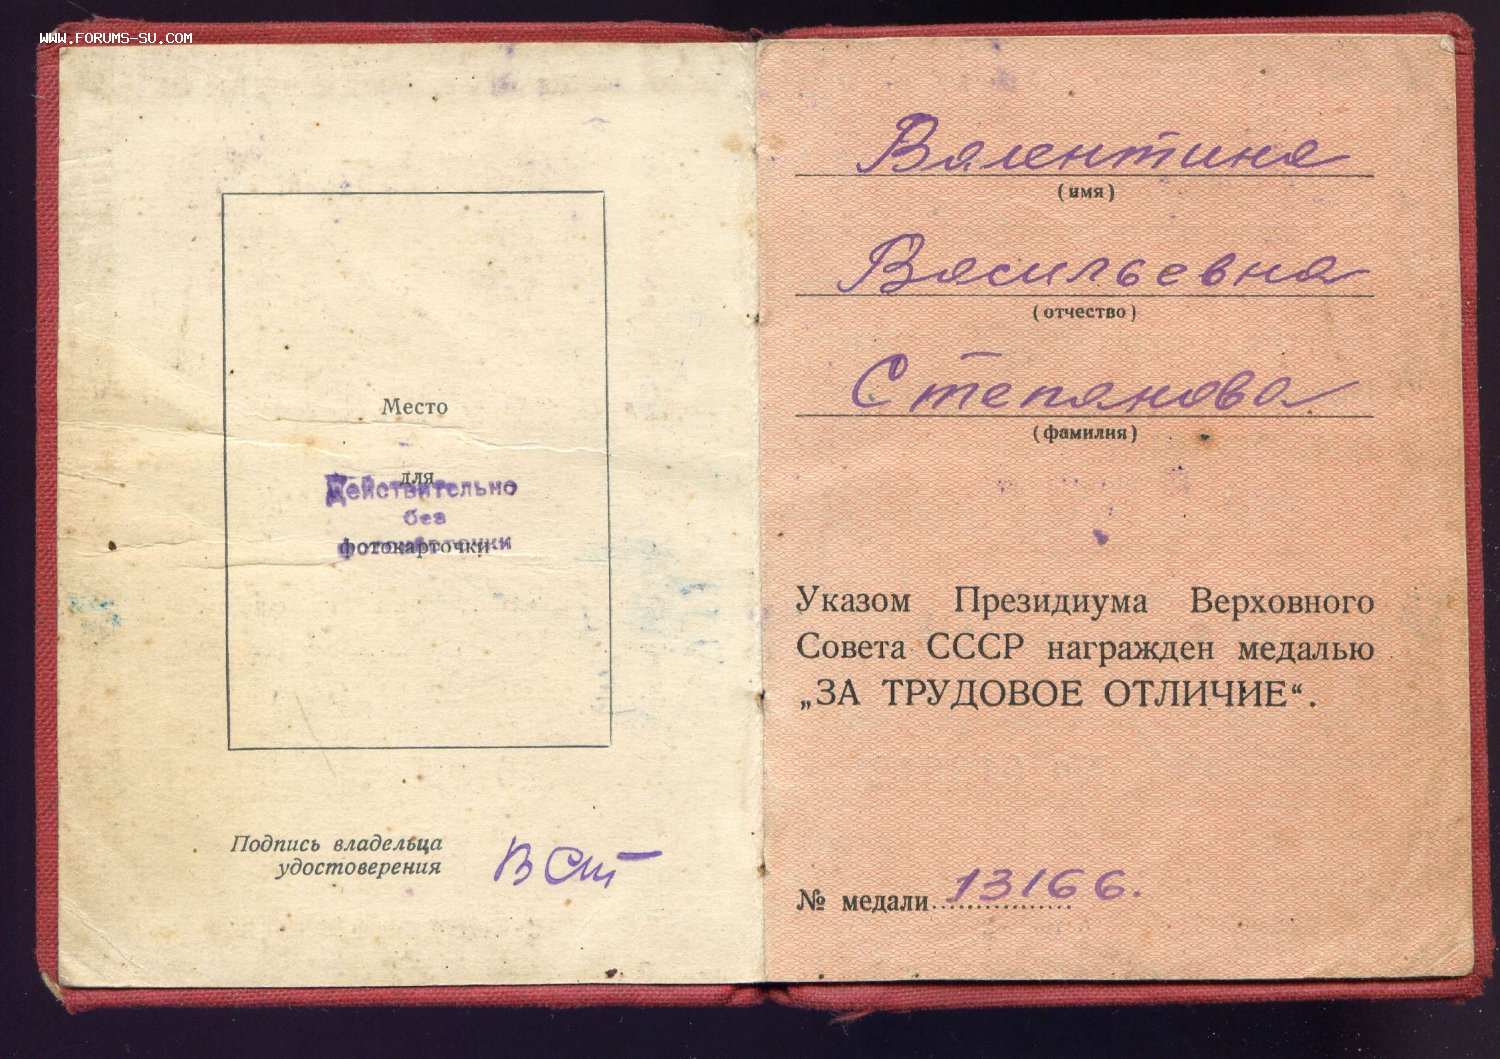 WWW.FORUMS-SU.COM
Место
для
Действительно
без
фотокарточки
фотокарточки
Подпись владельца
удостоверения
В Ст
Валентина
(имя)
Васильевна
(отчество)
Степанова
(фамилия)
Указом Президиума Верховного
Совета СССР награжден медалью
„ЗА ТРУДОВОЕ ОТЛИЧИЕ“.
№ медали 13166.